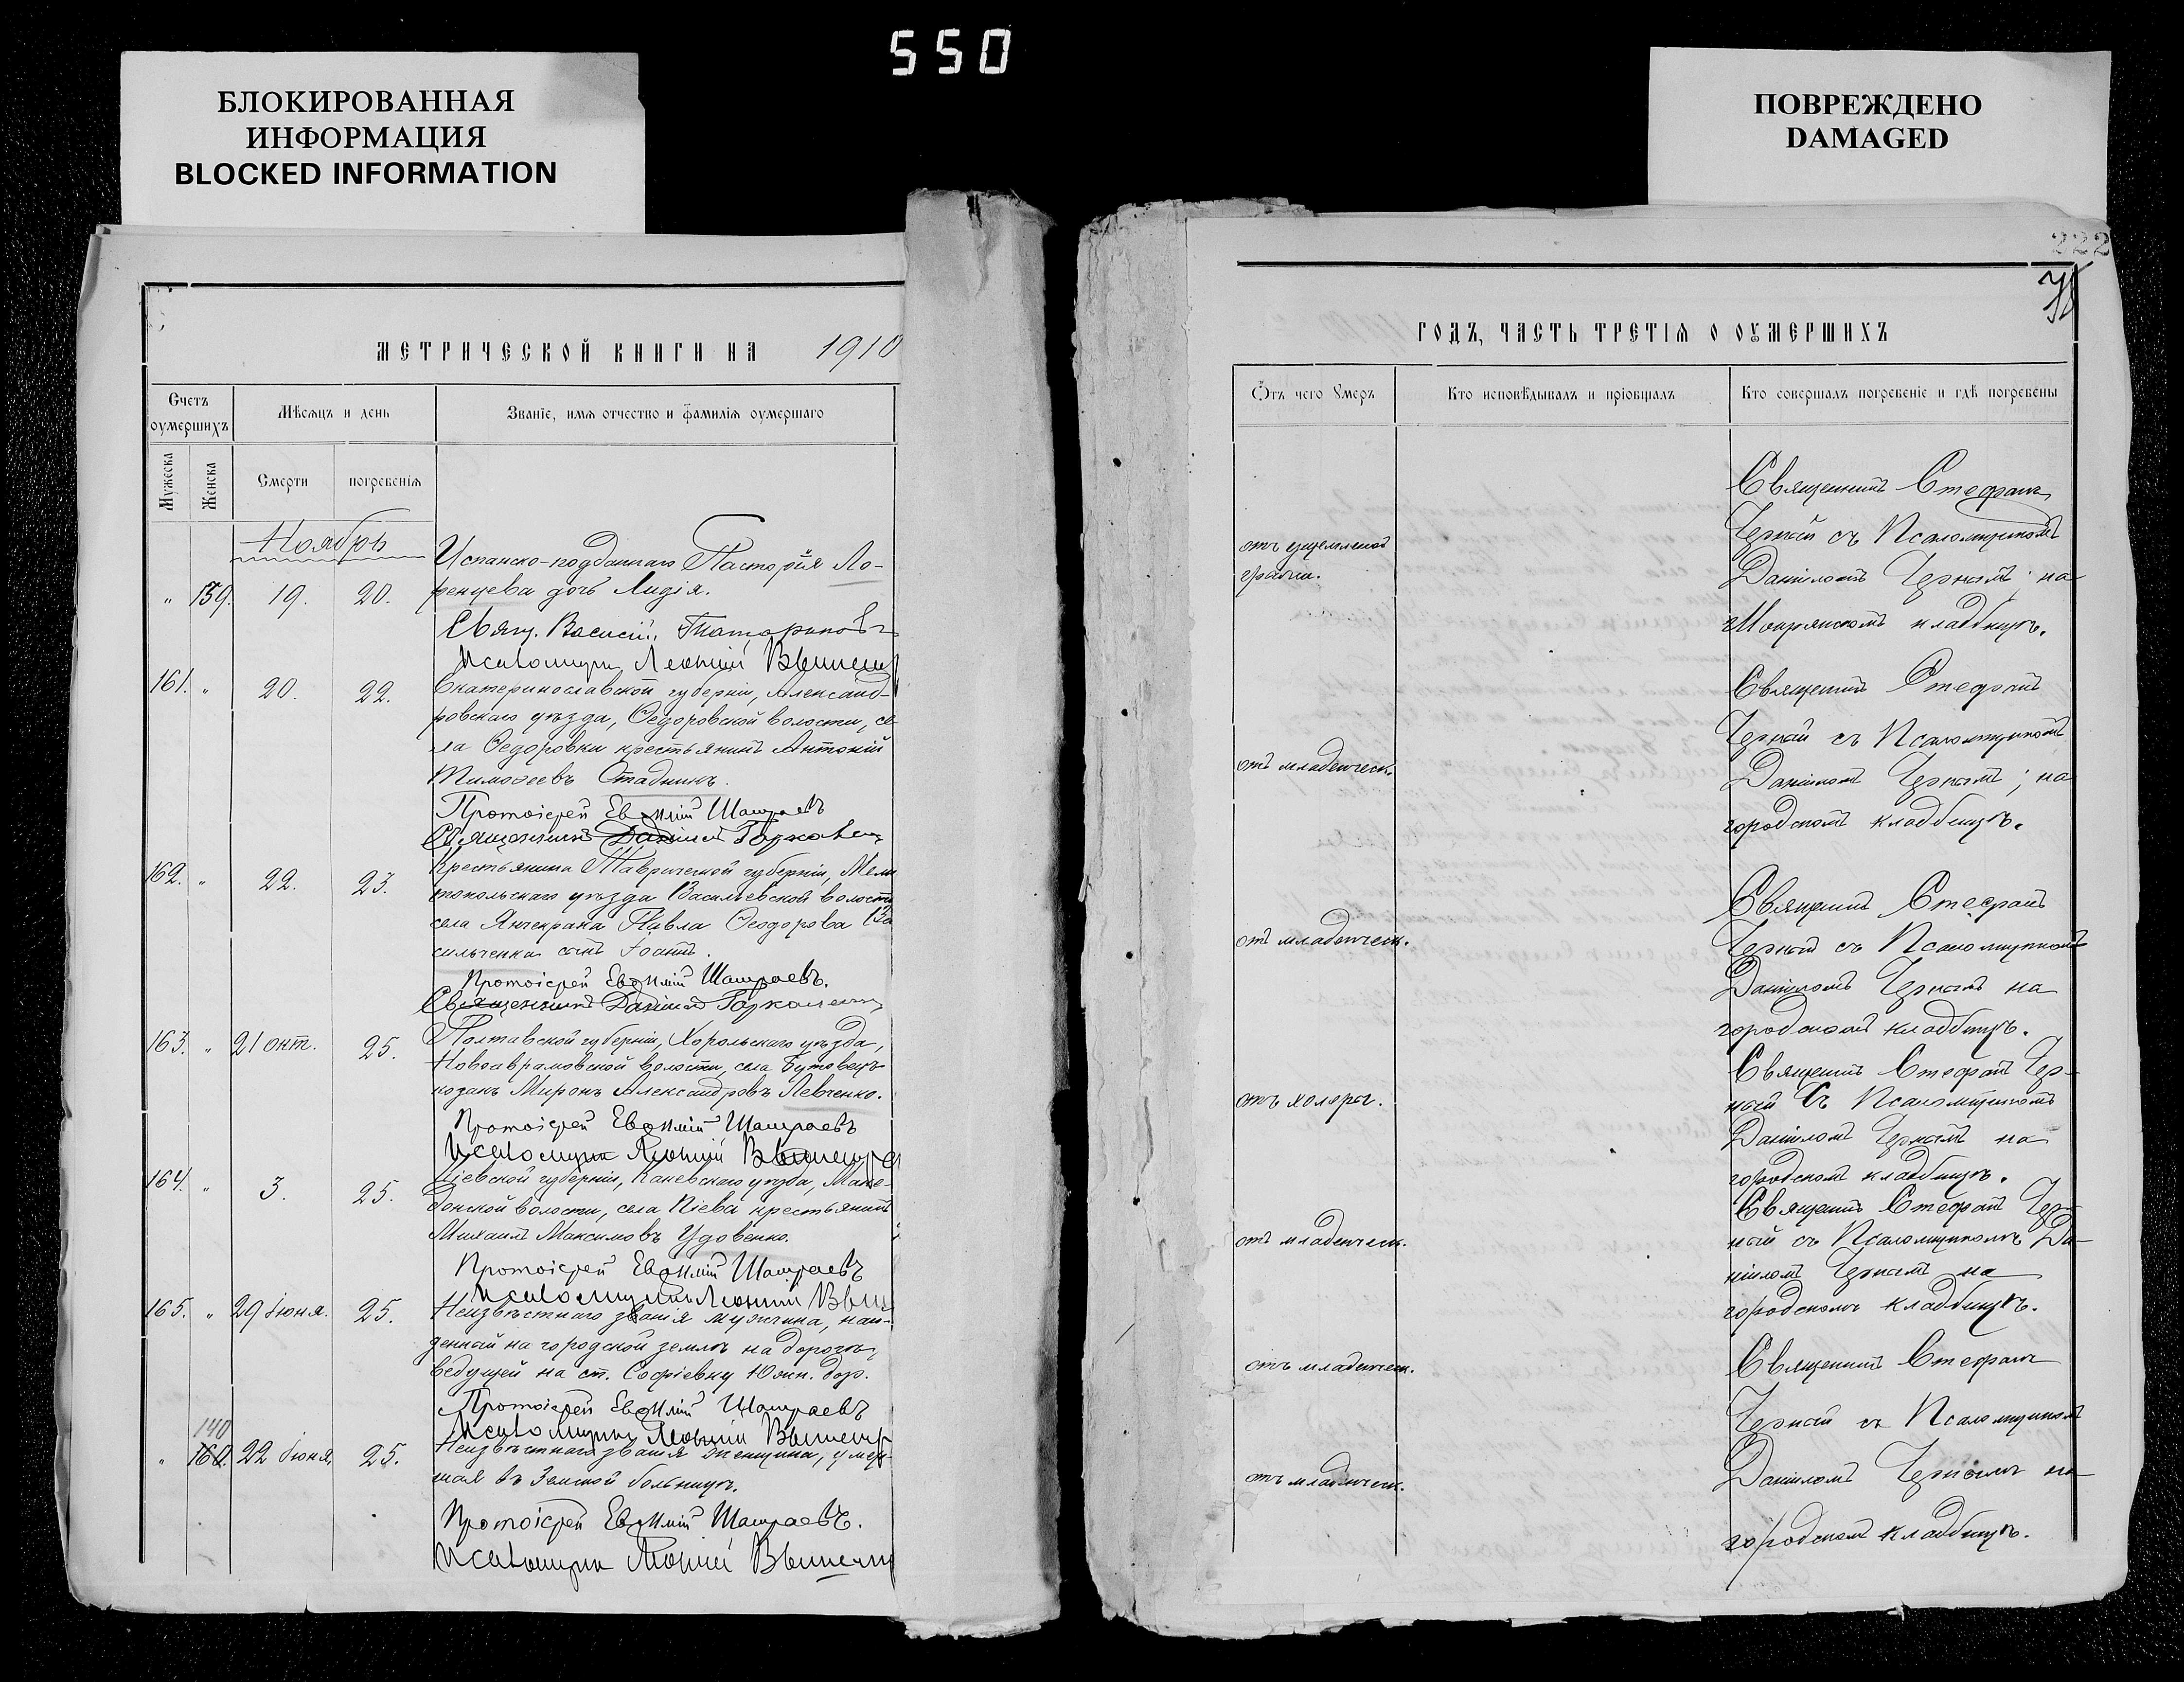 550
БЛОКИРОВАННАЯ
ИНФОРМАЦИЯ
BLOCKED INFORMATION
ПОВРЕЖДЕНО
DAMAGED
МЕТРИЧЕСКОЙ КНИГИ НА 1910
Счетъ оумершихъ
Мѣсяцъ и день
Званіе, имя отчество и фамилія оумершаго
Мужеска
Женска
Смерти
погребенія
Ноябрь
Испанско-подданнаго Пасторія Ло-
" 159. 19. 20. ренцева дочь Лидія.
Свящ. Василій
Псаломщикъ Леонтій
161. " 20. 22. Екатеринославской губерніи, Александ-
ровскаго уѣзда, Ѳедоровской волости, се-
ла Ѳедоровки крестьянинъ Антоній
Тимоѳеевъ Стадникъ.
Протоіерей Евѳимій
Священникъ Даніилъ
162. " 22. 23. Крестьянина Таврической губерніи, Мели
топольскаго уѣзда Васильевской волости
села Янчекрака Павла Ѳеодорова Ва
сильченка сынъ Іоаннъ.
Протоіерей Евѳимій
Священникъ Даніилъ
163. " 21 окт. 25. Полтавской губерніи, Хорольскаго уѣзда,
Новоаврамовской волости, села Бутовецъ
козакъ Миронъ Александровъ Левченко.
Протоіерей Евѳимій
Псаломщикъ Леонтій
164. " 3. 25. Кіевской губерніи, Каневскаго уѣзда,
волости, села крестьянинъ
Михаилъ Максимовъ Удовенко.
Протоіерей Евѳимій
Псаломщикъ Леонтій
165. " 29 Іюня. 25. Неизвѣстнаго званія мужчина, най-
денный на городской землѣ на дорогѣ,
ведущей на ст. Софіевку Южн. дор.
Протоіерей Евѳимій
Псаломщикъ Леонтій
140
" 160. 22 Іюня, 25. Неизвѣстнаго званія женщина, умер-
шая въ Земской больницѣ.
Протоіерей Евѳимій
Псаломщикъ Леонтій
222
ГОДЪ, ЧАСТЬ ТРЕТІЯ О ОУМЕРШИХЪ
Отъ чего Умеръ
Кто исповѣдывалъ и пріобщалъ
Кто совершалъ погребеніе и гдѣ погребены
отъ ущемленой
грыжи.
Священникъ Стефанъ
Черный съ Псаломщикомъ
Даніиломъ Чернымъ; на
кладбищѣ.
отъ младенческ.
Священникъ Стефанъ
Черный съ Псаломщикомъ
Даніиломъ Чернымъ; на
городскомъ кладбищѣ.
отъ младенческ.
Священникъ Стефанъ
Черный съ Псаломщикомъ
Даніиломъ Чернымъ на
городскомъ кладбищѣ.
отъ холеры.
Священникъ Стефанъ Чер-
ный съ Псаломщикомъ
Даніиломъ Чернымъ на
городскомъ кладбищѣ.
отъ младенческ.
Священникъ Стефанъ Чер-
ный съ Псаломщикомъ Да-
ніиломъ Чернымъ на
городскомъ кладбищѣ.
отъ младенческ.
Священникъ Стефанъ
Черный съ Псаломщикомъ
отъ младенческ.
Даніиломъ Чернымъ на
городскомъ кладбищѣ.